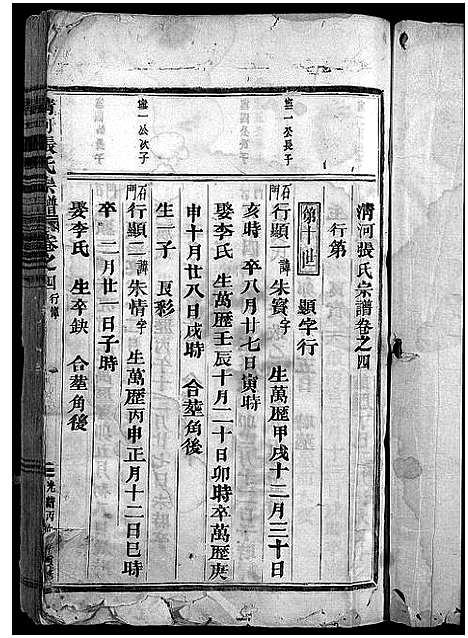 清河張氏宗譜卷之四
行第
第十世 顯字行
寵一公長子
石門行顯一諱朱賓字 生萬歷甲戌十二月三十日
亥時 卒八月廿七日寅時
娶李氏 生萬歷壬辰十月二十日卯時卒萬歷庚
申十月廿八日戌時 合塟角後
生一子 長彩
寵一公次子
石門行顯二諱朱情字 生萬歷丙申正月十二日巳時
卒 二月廿一日子時
娶李氏 生卒缺 合塟角後
清河張氏宗譜 卷之四 行諱
光緒丙